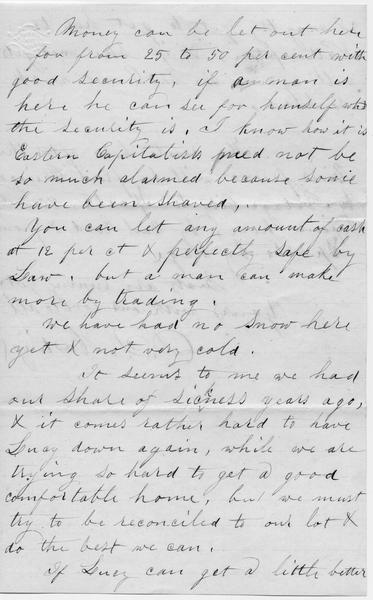 Money can be let out here
for from 25 to 50 per cent with
good security, if a man is
here he can see for himself what
the security is. I know how it is
Eastern Capitalists need not be
so much alarmed because some
have been shaved,.
You can let any amount of cash
at 12 per ct & perfectly safe by
Law. but a man can make
more by trading.
We have had no snow here
yet & not very cold.
It seems to me we had
our share of sickness years ago,
& it comes rather hard to have
Lucy down again, while we are
trying so hard to get a good
comfortable home, but we must
try to be reconciled to our lot &
do the best we can.
If Lucy can get a little better